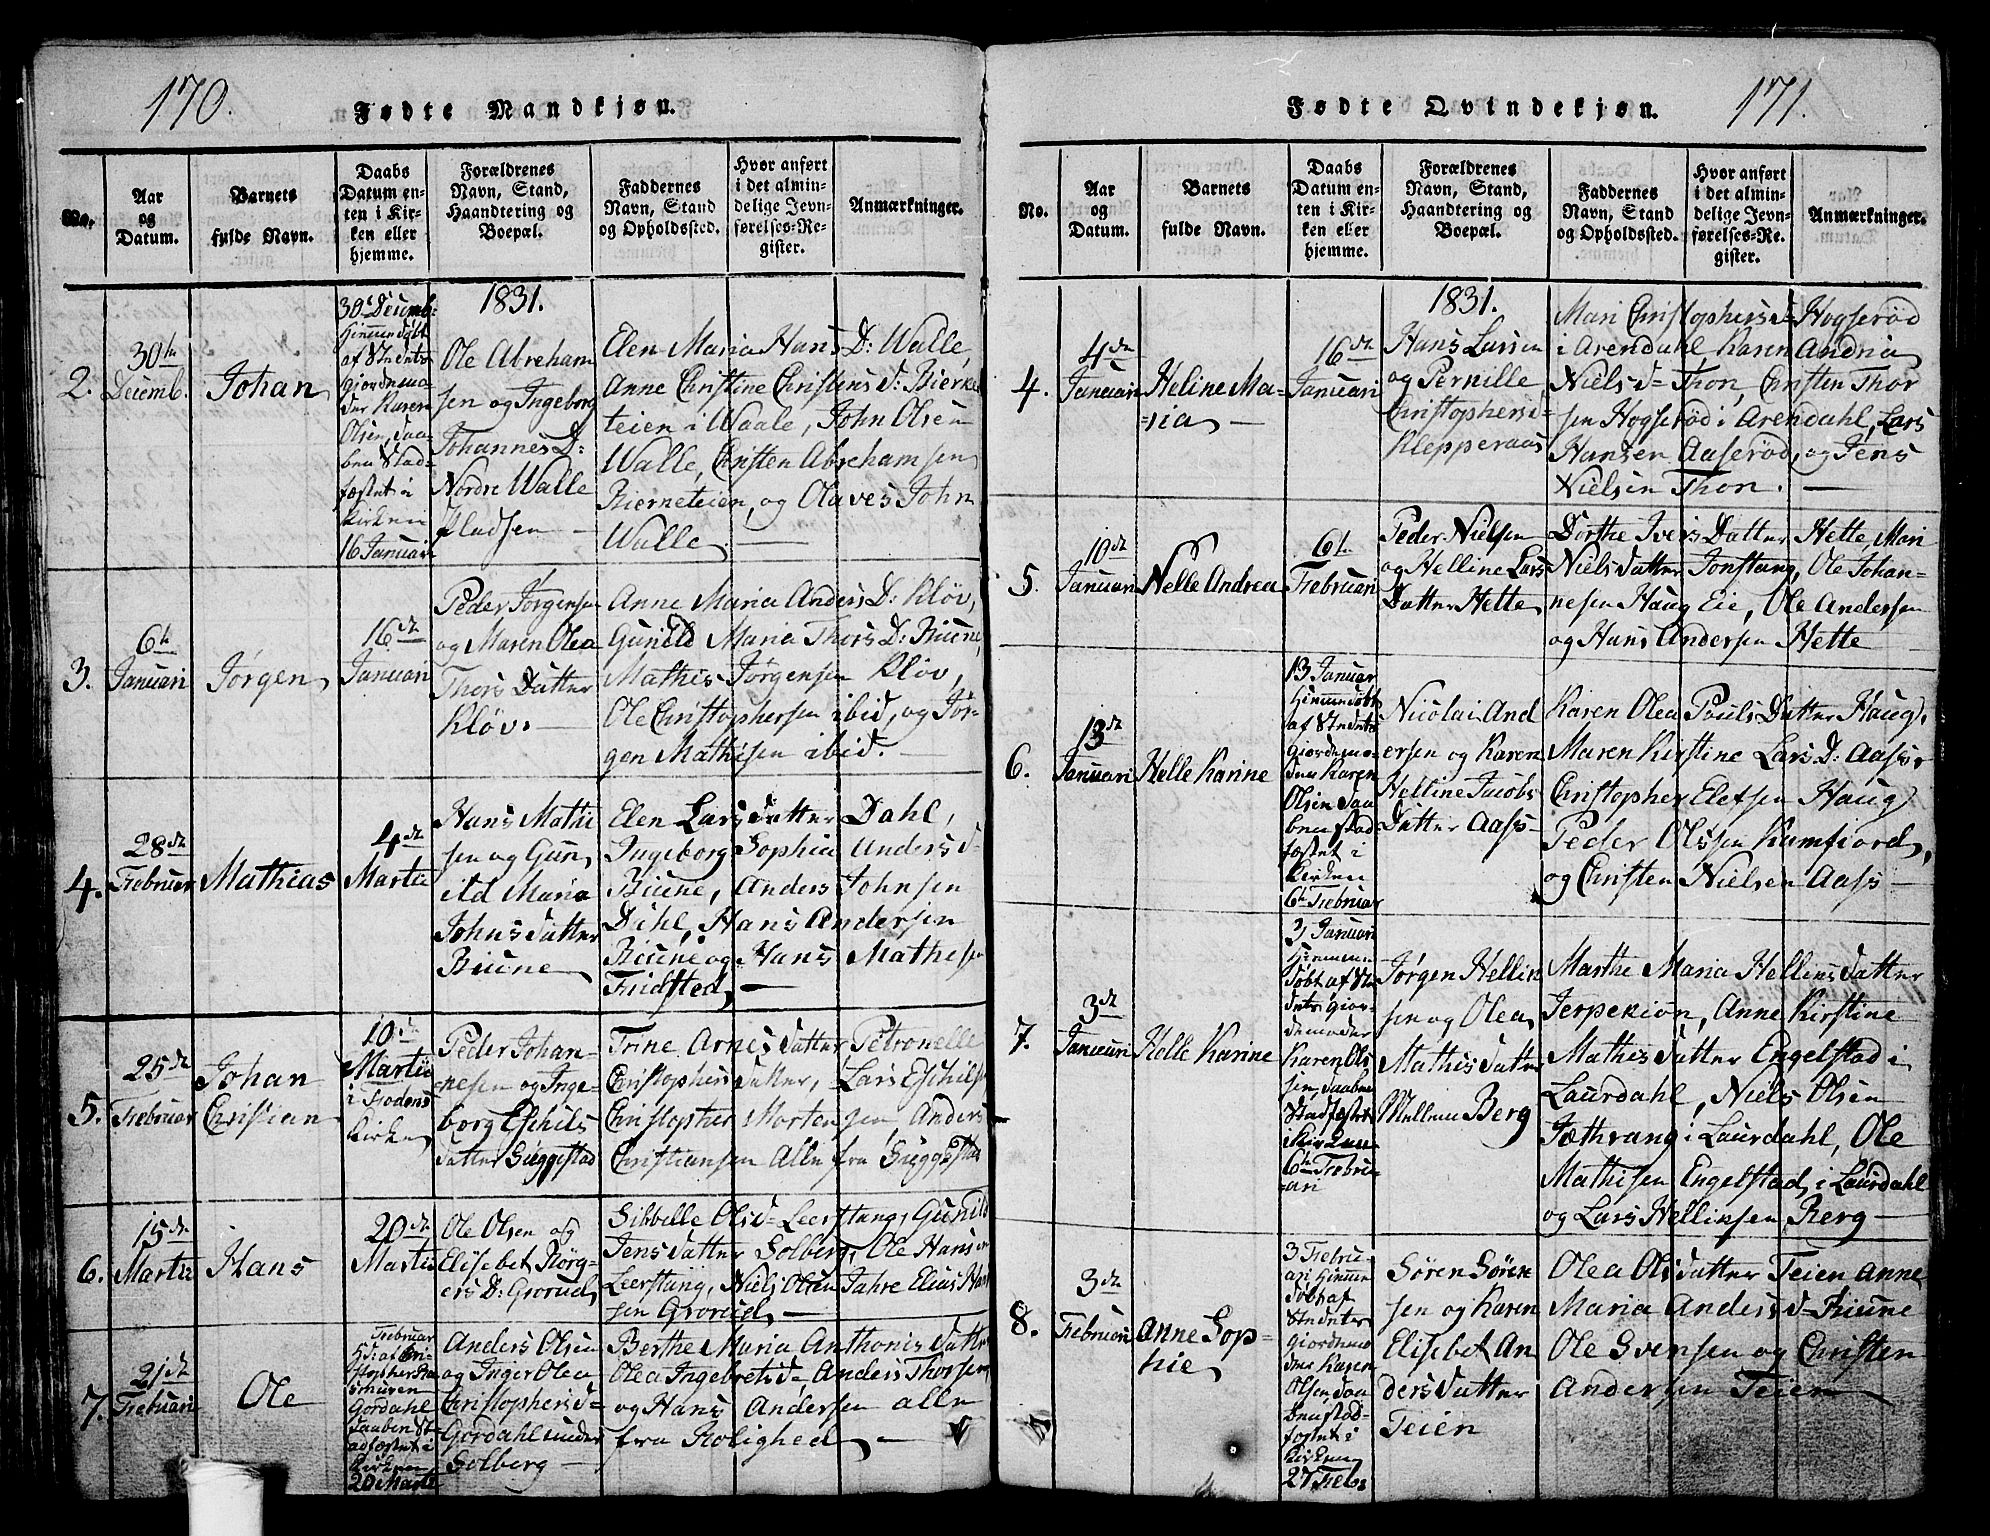 170.
Fødte Mandkjøn.
No.
Aar
og
Datum.
Barnets
fulde Navn.
Daabs
Datum en-
ten i Kir-
ken eller
hjemme.
Forældrenes
Navn, Stand,
Haandtering og
Boepæl.
Faddernes
Navn, Stand
og Opholdssted.
Hvor anført
i det almin-
delige Jevn-
førelses-Re-
gister.
Anmærkninger.
2.
30te
Decemb.
Johan
30te Decemb:
Hiemmedøbt
af
Giordemo-
der Karen
Olsen, Daa-
ben Stad-
fæstet i
Kirken
16 Januari
1831.
Ole Abraham
sen og Ingeborg
Johannes D:
Nordre Walle
Pladsen —
Elen Maria Hans D: Walle,
Anne Christine Christens d: Bierke
teien i Waale, John Olsen
Walle, Christen Abrehamsen
Bierneteien, og Olaves John
Walle
3.
6te
Januari
Jørgen
16de
Januari
Peder Jørgensen
og Maren Olea
Thors Datter
Kløv.
Anne Maria Anders D: Kløv,
Gunild Maria Thors D: Biune,
Mathis Jørgensen Kløv,
Ole Christophersen ibid, og Jør-
gen Mathisen ibid. —
4.
28de
Februar
Mathias
4de
Martii
Hans Mathi
sen og Gun
ild Maria
Johnsdatter
Biune
Elen Larsdatter Dahl,
Ingeborg Sophia Anders d-
Biune, Anders Johnsen
Dahl, Hans Andersen
Biune og Hans Mathisen
Fridsted, —
5.
25de
Februar
Johan
Christian
10de
Martii
i Bodens
Kirken
Peder Johan-
nesen og Inge-
borg Eschils
datter Suggestad
Trine Arnesdatter Petronelle
Christophersdatter, Lars Eschils
Christopher Mortensen, Anders
Christiansen Alle fra Suggestad
6.
15de
Martii
Hans
20de
Martii
Ole Olsen og
Elisebet Børg-
ers D: Grorud,
Sibbelle Ols d- Leerstang, Gunild
Jensdatter Solberg, Ole Hansen
Leerstang, Niels Olsen Jahre Elias Han
sen Grorud, —
7.
21de
Februari
Ole
Februar
Gordahl
Daaben St-
adfæstet i
Kirken
20 Martii
Anders Olsen
og Inger Olea
Christophersd-
Gordahl under
Solberg —
Berthe Maria Anthonis datter
Olea Ingebrets d- Anders Thorsen
og Hans Andersen alle
fra Rolighed —
171.
Fødte Qvindekjøn.
No.
Aar
og
Datum.
Barnets
fulde Navn.
Daabs
Datum en-
ten i Kir-
ken eller
hjemme.
Forældrenes
Navn, Stand,
Haandtering og
Boepæl.
Faddernes
Navn, Stand
og Opholdssted.
Hvor anført
i det almin-
delige Jevn-
førelses-Re-
gister.
Anmærkninger.
4.
4de
Januari
Heline Ma-
ria —
16de
Januari
1831.
Hans Larsen
og Pernille
Christophersd-
Klepperaas
Mari Christophers d- Hogserød
i Arendahl Karen Andria
Niels d- Thon, Christen Thor
sen Hogserød i Arendahl, Lars
Hansen Aaserød, og Jens
Nielsen Thon. —
5.
10de
Januari
Nelle Andrea
6te
Februari
Peder Nielsen
og Helline Lars
Datter Hette
Dorthe Ivers Datter Hette, Mari
Nielsdatter Jonstang, Ole Johan-
nesen Haug Eie, Ole Andersen
og Hans Andersen Hette
6.
13de
Januari
Helle Karine
13 Januar
Hiemmedøbt
af
Giordemo-
deren Karen
Olsen Daa
ben stad
fæstet i
Kirken
6te Februar
Nicolai And
ersen og Karen
Helline Jacobs
Datter Aass-
Karen Olea Pouls Datter Haug,
Maren Kirstine Lars D: Aass,
Christopher Elefsen Haug
Peder Olssen Kamfiord,
og Christen Nielsen Aass —
7.
3de
Januari
Helle Karine
3 Januari
Hiemme
døbt af
giør-
demoder
Karen Ol-
sen, Daaben
Stadfæstet
i Kirken
6te Febru-
ari
Jørgen Hellik
sen og Olea
Mathisdatter
Mellem Berg
Marthe Maria Helliksdatter
Jerpekiøn, Anne Kirstine
Mathisdatter Engelstad i
Laurdahl, Niels Olsen
Jæthvang i Laurdahl, Ole
Mathisen Engelstad, i Laurdahl
og Lars Helliksen Berg —
8.
3de
Februari
Anne Sop-
hie
3 Febru-
ari Hiemme
døbt af
Giordemo
der Karen
Olsen, Daa
ben stad-
fæstet i
Kirken
27 Feb.
Søren Søren
sen og Karen
Elisebet An
dersdatter
Teien
Olea Olsdatter Teien Anne
Maria Anders d- Biune
Ole Svensen og Christen
Andersen Teien